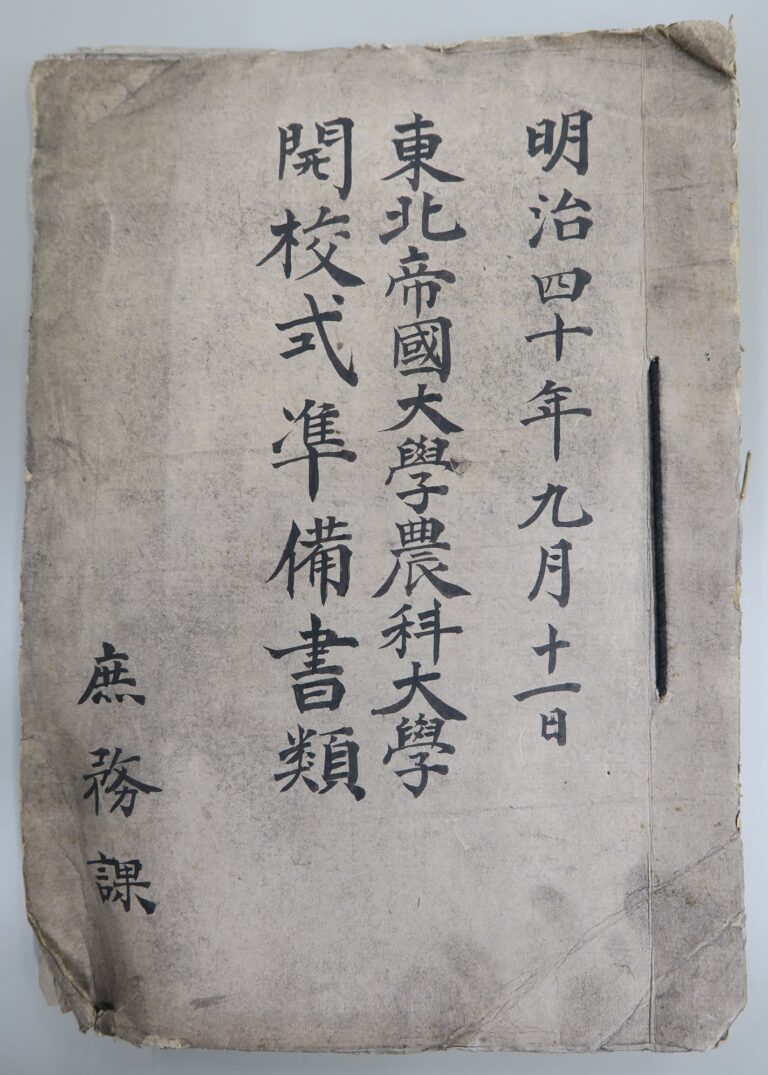 明治四十年九月十一日
東北帝國大學農科大學
開校式準備書類
庶務課